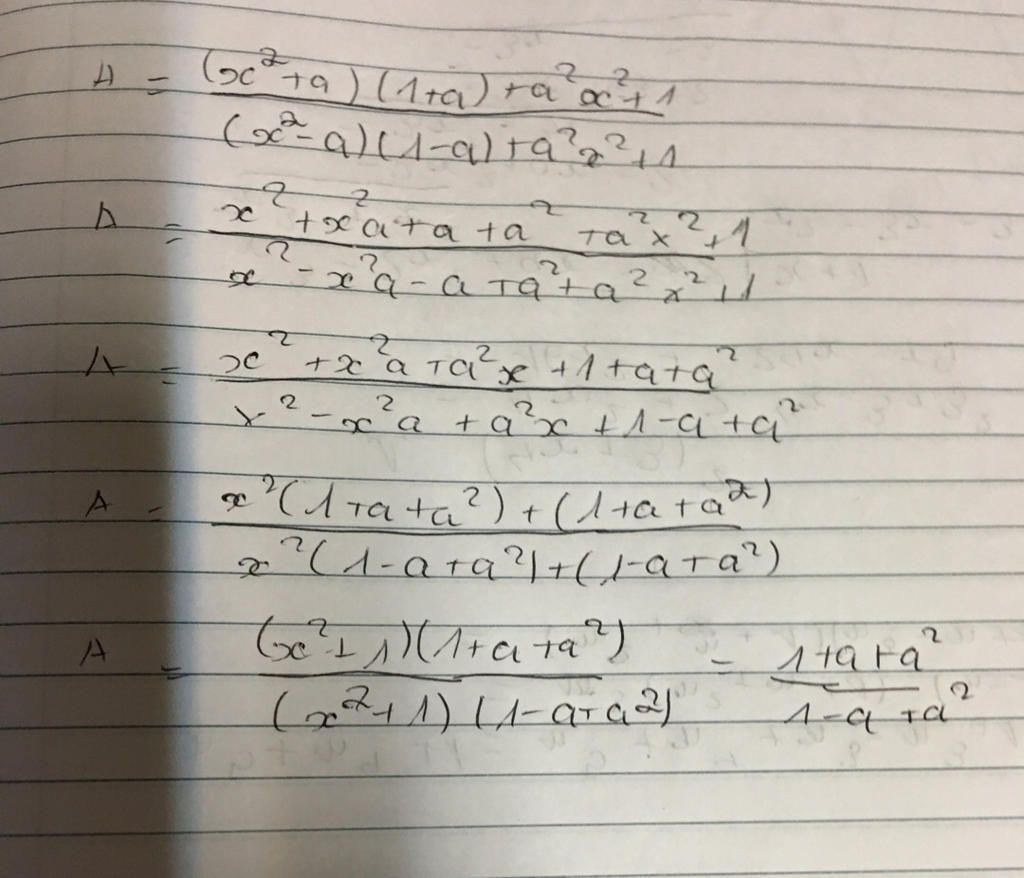 A = ((x²+a)(1+a)+a²x²+1)/((x²-a)(1-a)+a²x²+1)
A = (x²+x²a+a+a²+a²x²+1)/(x²-x²a-a+a²+a²x²+1)
A = (x²+x²a+a²x+1+a+a²)/(x²-x²a+a²x+1-a+a²)
A = (x²(1+a+a²)+(1+a+a²))/(x²(1-a+a²)+(1-a+a²))
A = ((x²+1)(1+a+a²))/((x²+1)(1-a+a²)) = (1+a+a²)/(1-a+a²)